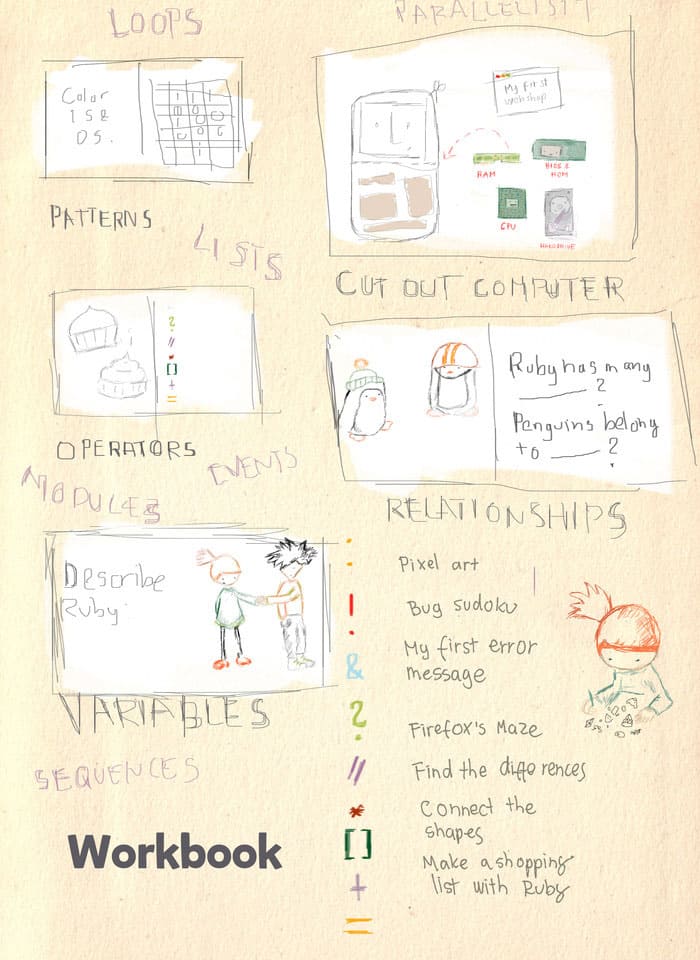 LOOPS
PARALLELISM
Color
1S &
0S.
My first
webshop
RAM
BIOS &
ROM
CPU
HARDDRIVE
PATTERNS
LISTS
CUT OUT COMPUTER
?
//
*
[]
+
=
Ruby has many
____ ?
Penguins belong
to ____ ?
OPERATORS
EVENTS
MODULES
RELATIONSHIPS
Describe
Ruby:
VARIABLES
SEQUENCES
Workbook
:
!
&
?
//
*
[]
+
=
Pixel art
Bug sudoku
My first error
message
Firefox's Maze
Find the differences
Connect the
shapes
Make a shopping
list with Ruby